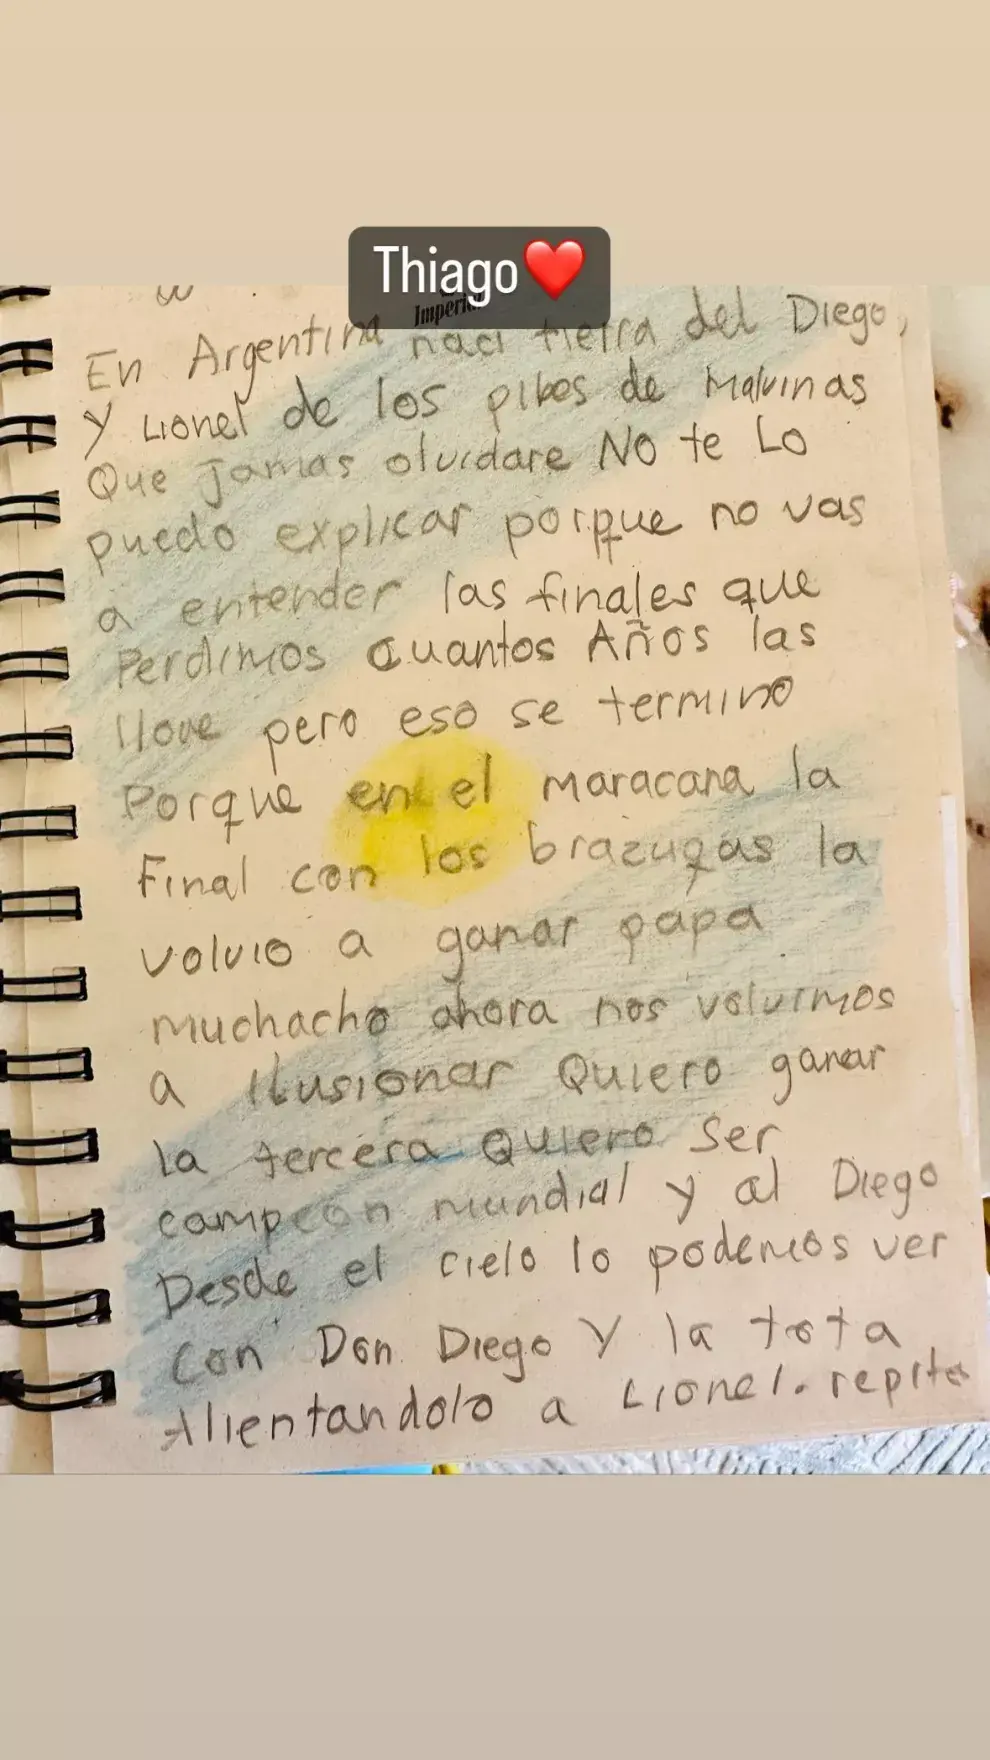 Thiago❤️
Imperial
En Argentina naci tierra del Diego,
Y Lionel de los pibes de Malvinas
Que Jamas olvidare NO te Lo
puedo explicar porque no vas
a entender las finales que
Perdimos cuantos Años las
llore pero eso se termino
Porque en el maracana la
Final con los brazugas la
volvio a ganar papa
muchacho ahora nos volvimos
a ilusionar Quiero ganar
la tercera Quiero Ser
campeon mundial y al Diego
Desde el cielo lo podemos ver
con Don Diego Y la tota
Alientandolo a Lionel. repite